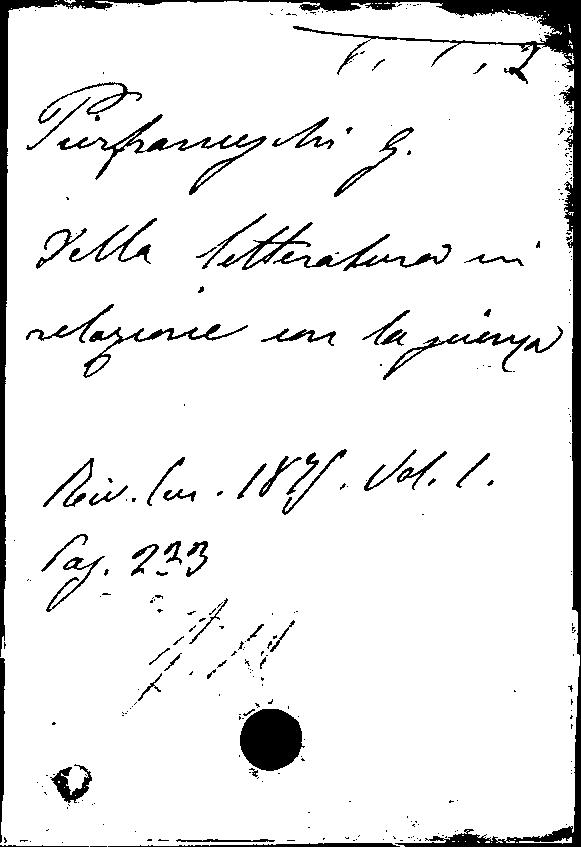 Pierfranceschi G.
Della letteratura in
relazione con la scienza
Riv. Eur. 1875. Vol. 1.
Pag. 233